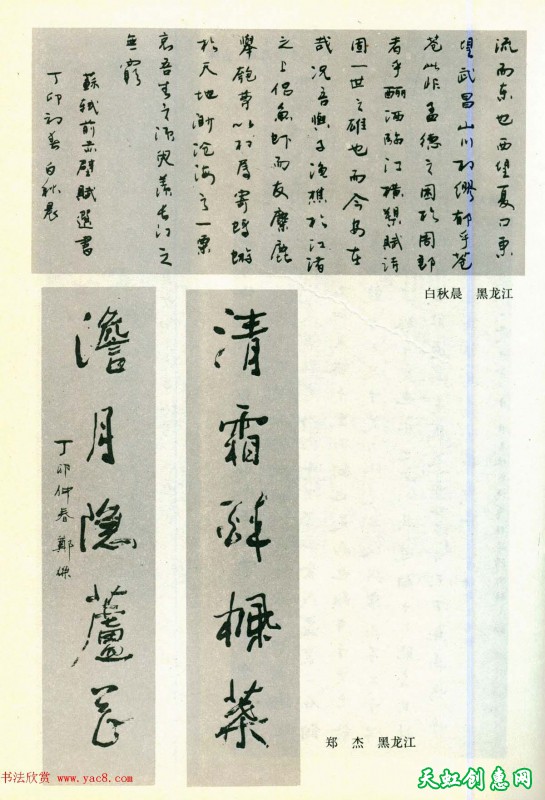 流而东也西望夏口東
望武昌山川相缪郁乎苍
苍此非孟德之困於周郎
者乎酾酒临江横槊赋诗
固一世之雄也而今安在
哉况吾與子渔樵於江渚
之上侣鱼虾而友麋鹿
舉匏尊以相属寄蜉蝣
於天地渺沧海之一粟
哀吾生之须臾羡长江之
无窮
蘇轼前赤壁赋選書
丁卯初春 白秋晨
白秋晨 黑龙江
清霜醉楓葉
澹月隐蘆花
丁卯仲春 鄭傑
郑 杰 黑龙江
书法欣赏 www.yac8.com
天虹创意网